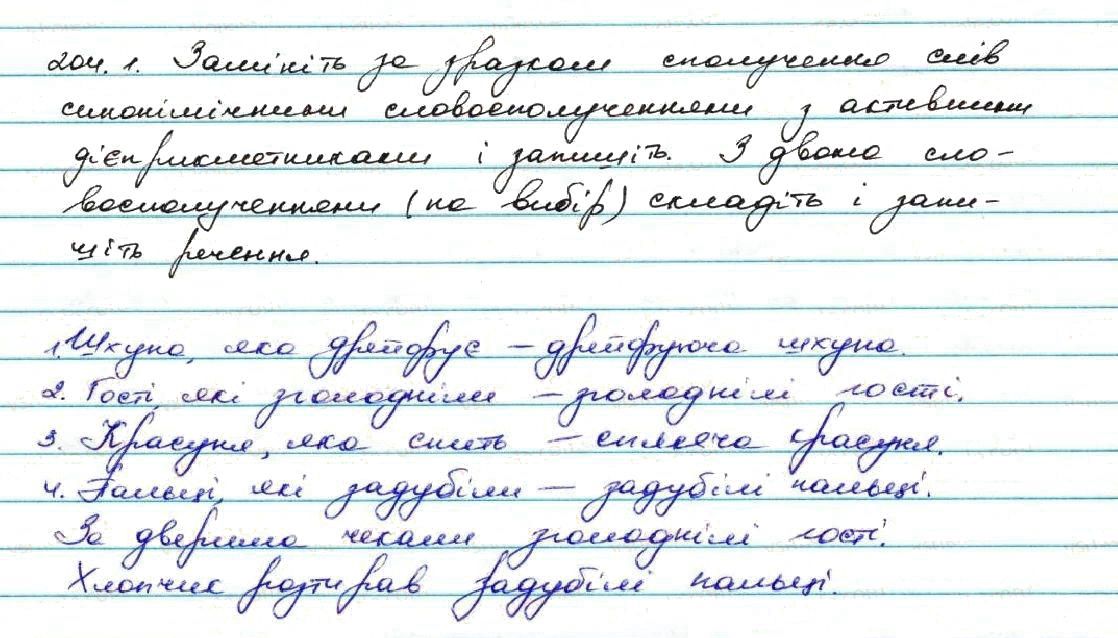 204. 1. Замініть за зразком сполучення слів
синонімічними словосполученнями з активними
дієприкметниками і запишіть. З двома сло-
восполученнями (на вибір) складіть і запи-
шіть речення.
1. Шхуна, яка дрейфує – дрейфуюча шхуна.
2. Гості, які зголодніли – зголоднілі гості.
3. Красуня, яка спить – спляча красуня.
4. Пальці, які задубіли – задубілі пальці.
За дверима чекали зголоднілі гості.
Хлопчик розтирав задубілі пальці.